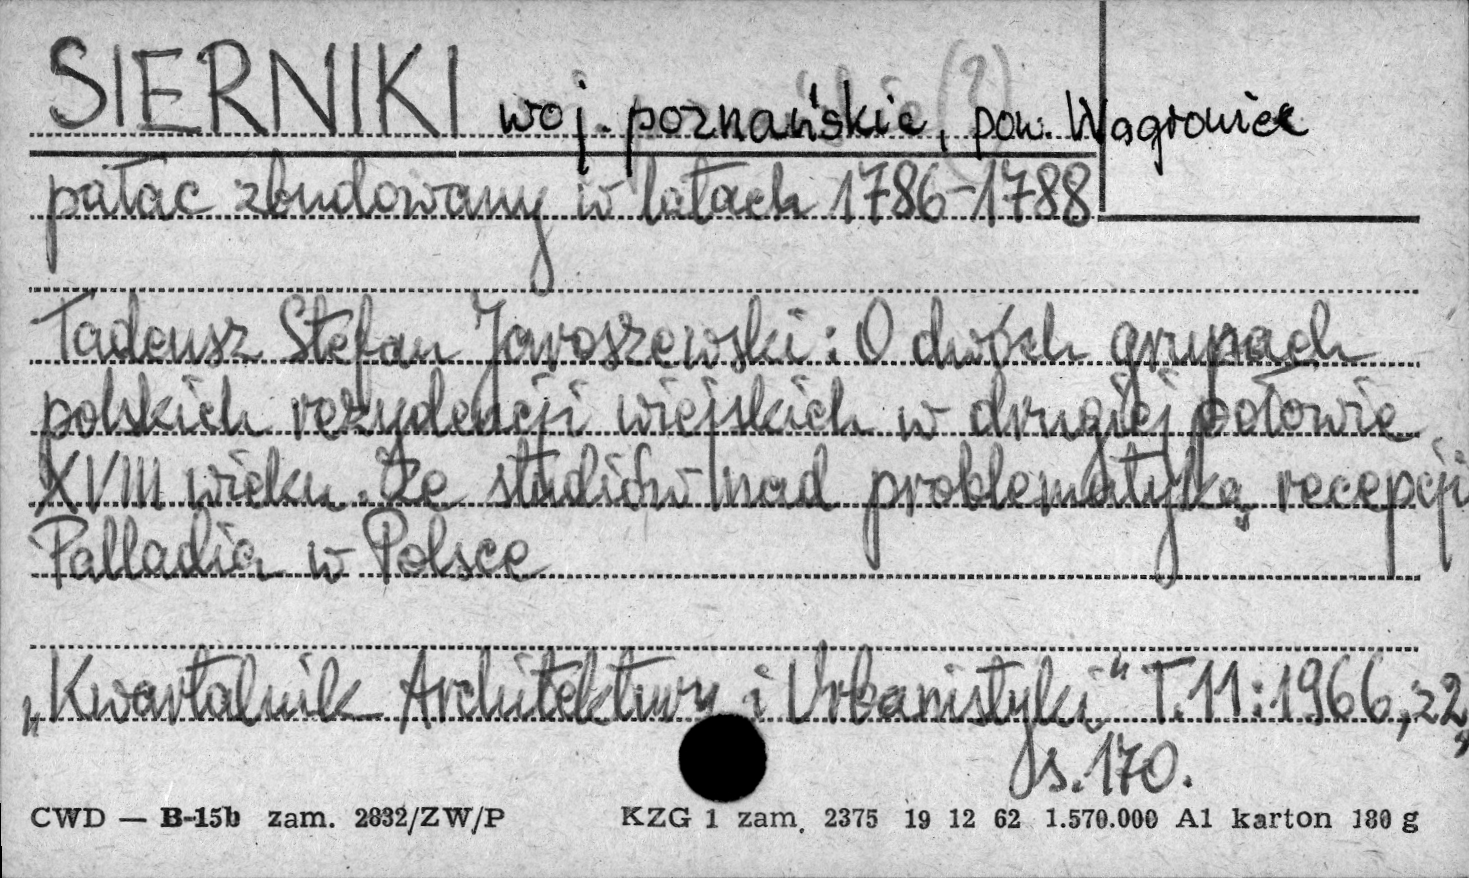 SIERNIKI woj. poznańskie, (?) pow. Wągrowiec
pałac zbudowany w latach 1786-1788
Tadeusz Stefan Jaroszewski: O dwóch grupach
polskich rezydencji wiejskich w drugiej połowie
XVIII wieku. Ze studiów nad problematyką recepcji
Palladia w Polsce
„Kwartalnik Architektury i Urbanistyki" T.11:1966, z2,
s.170.
CWD — B-15b zam. 2832/ZW/P KZG 1 zam. 2375 19 12 62 1.570.000 A1 karton 180 g